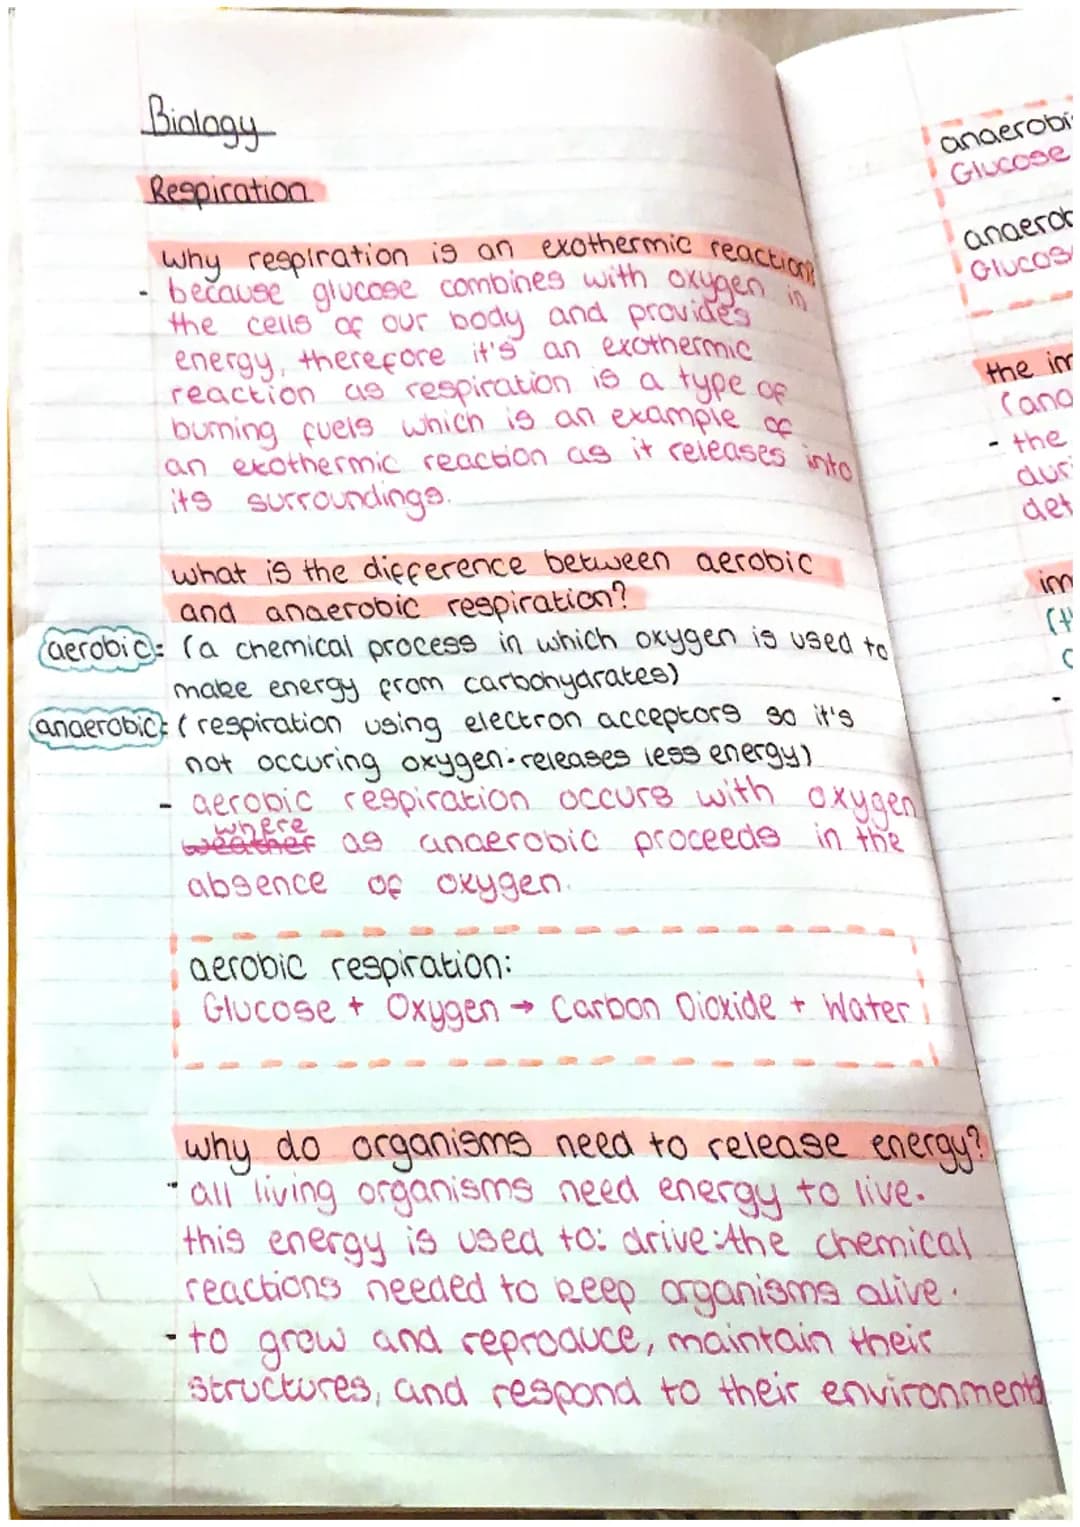 Biology
Respiration
why respiration is an exothermic reaction?
- because glucose combines with oxygen in
the cells of our body and provides
energy, therefore it's an exothermic
reaction as respiration is a type of
burning fuels which is an example of
an exothermic reaction as it releases into
its surroundings.
what is the difference between aerobic
and anaerobic respiration?
aerobic: (a chemical process in which oxygen is used to
make energy from carbohydrates)
anaerobic: (respiration using electron acceptors so it's
not occuring oxygen · releases less energy)
- aerobic respiration occurs with oxygen
where
weather as anaerobic proceeds in the
absence of oxygen.
aerobic respiration:
Glucose + Oxygen → Carbon Dioxide + Water
why do organisms need to release energy?
- all living organisms need energy to live.
this energy is used to: drive: the chemical
reactions needed to keep organisms alive.
- to grow and reproduce, maintain their
structures, and respond to their environments
anaerobi
Glucose
anaerob
Glucos
the im
(ana
- the
duri
det
im
(t
-